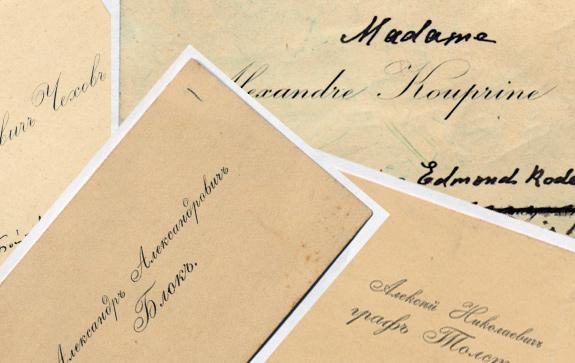 Madame
Alexandre Kouprine
Edmond
Чеховъ
Александръ Александровичъ
Блокъ.
Алексѣй Николаевичъ
графъ Толст